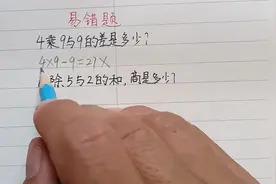 易错题
4乘9与9的差是多少?
4×9-9=27×
除5与2的和,商是多少?